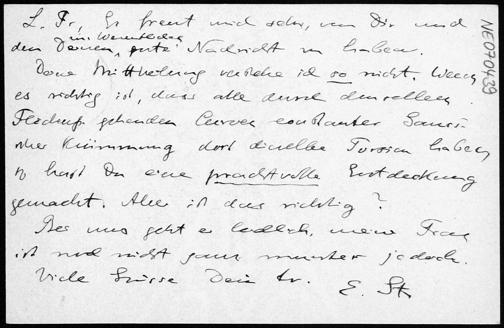 L. Fr, Es freut mich sehr, von Dir und
den Deinen, im Wesentlichen, gute Nachricht zu haben.
Deine Mitteilung verstehe ich so nicht. Wenn
es richtig ist, dass alle durch denselben
gehenden Curven constanter
Krümmung dort dieselbe Torsion haben
so hast Du eine prachtvolle Entdeckung
gemacht. Aber ist das richtig?
Bei uns geht es leidlich, meine Frau
ist noch nicht ganz munter jedoch.
Viele Grüsse Dein tr. E. St
NE070439